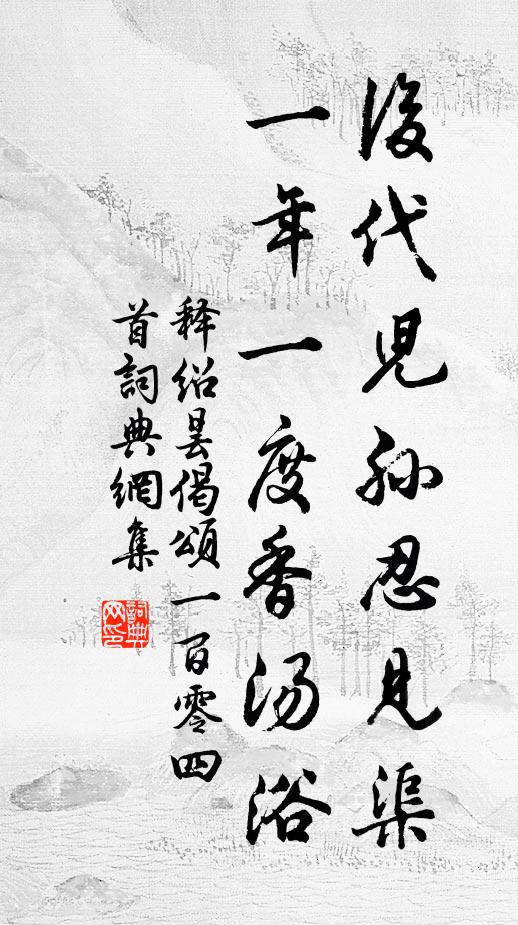 後代児孫忍見渠
一年一度香湯浴
释绍昙偈頌一百零四
首詞典網集
詞典
网印